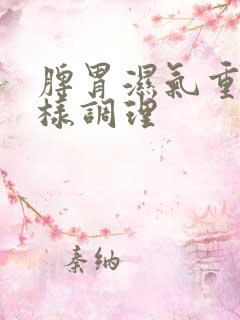 脾胃濕氣重
樣調理
秦纳